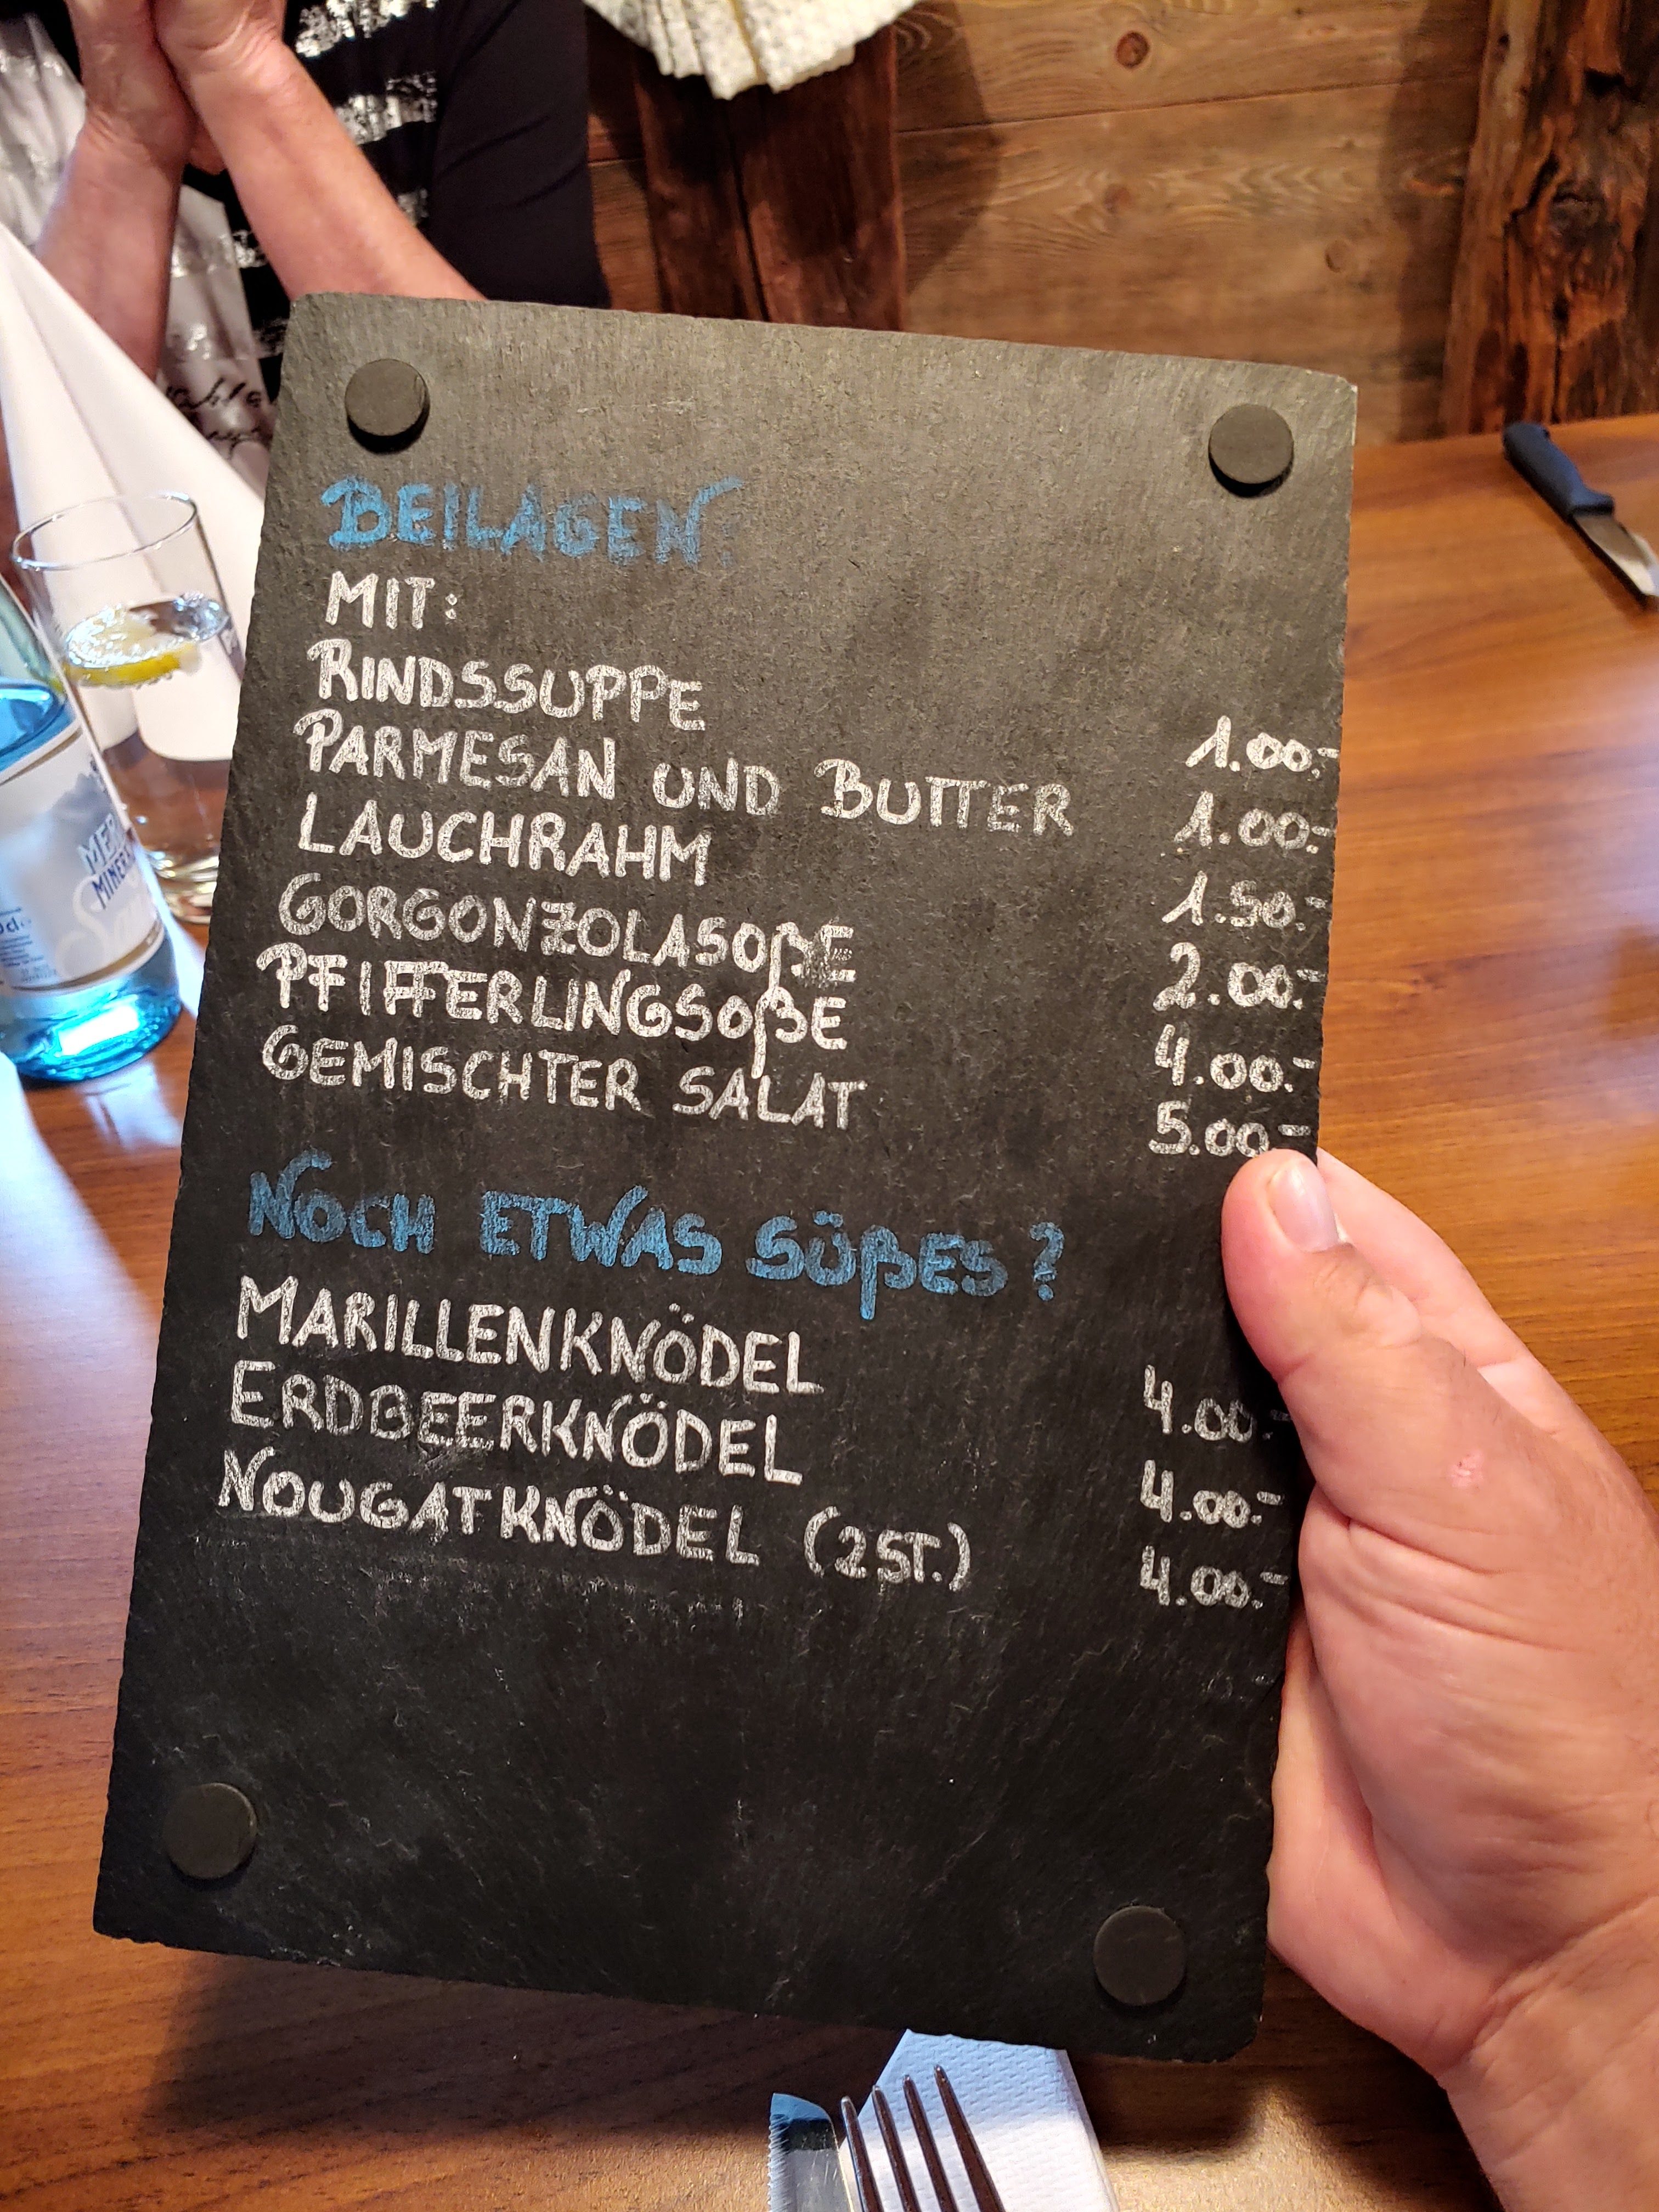 BEILAGEN:
MIT:
RINDSSUPPE 1.00.-
PARMESAN UND BUTTER 1.00.-
LAUCHRAHM 1.50.-
GORGONZOLASOßE 2.00.-
PFIFFERLINGSOßE 4.00.-
GEMISCHTER SALAT 5.00.-
NOCH ETWAS SÜßES?
MARILLENKNÖDEL 4.00.-
ERDBEERKNÖDEL 4.00.-
NOUGATKNÖDEL (2ST.) 4.00.-